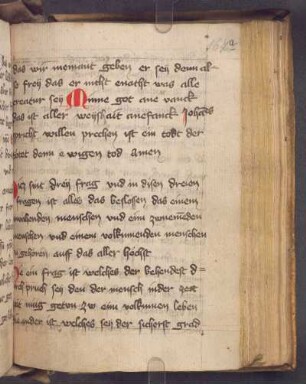 das wir niemant geben er sey denn al-
so frey das er nicht enacht was alle
creatur sey Minne got ane wanck
das ist aller weyshait anefanck Johans
spricht willen prechen ist ein todt der
tötet denn ewigen tod amen
Das sint drey frag vnd in disen dreien
fragen ist alles das beslosen das einem
menschen vnd einem zunemenden
menschen vnd einem volkumenden menschen
zugehoren auff das aller höchst
Die ein frag ist welches der behendest
pruch sey den der mensch in der
mug getun zw eim volkumen leben
die ander ist welches sey der sicherst grad